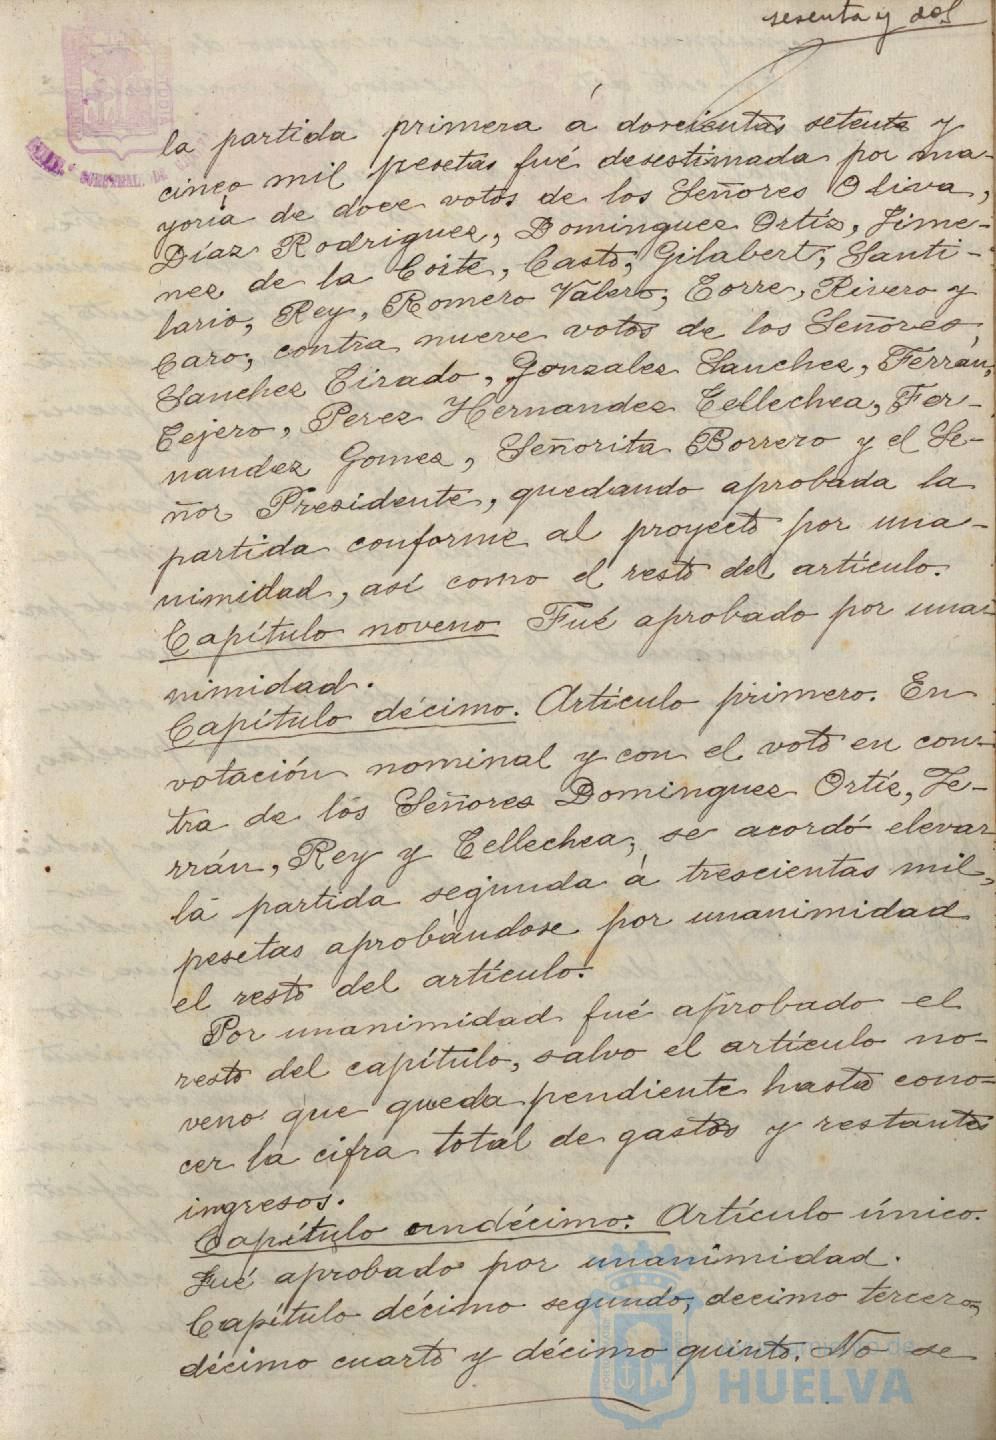 sesenta y dos
la partida primera á doscientas setenta y
cinco mil pesetas fué desestimada por ma-
yoria de doce votos de los Señores Oliva,
Díaz Rodriguez, Dominguez Ortíz, Jime-
nez de la Corte, Casto, Gilabert, Santi-
lario, Rey, Romero Valero, Torre, Rivero y
Caro, contra nueve votos de los Señores
Sanchez Tirado, Gonzalez Sanchez, Ferrán,
Tejero, Perez Hernandez Tellechea, Fer-
nandez Gomez, Señorita Borrero y el Se-
ñor Presidente, quedando aprobada la
partida conforme al proyecto por una-
nimidad, así como el resto del artículo.
Capítulo noveno Fué aprobado por una-
nimidad.
Capítulo décimo. Artículo primero. En
votación nominal y con el voto en con-
tra de los Señores Dominguez Ortíz, Fe-
rrán, Rey y Tellechea, se acordó elevar
la partida segunda á trescientas mil,
pesetas aprobándose por unanimidad
el resto del artículo.
Por unanimidad fué aprobado el
resto del capítulo, salvo el artículo no-
veno que queda pendiente hasta cono-
cer la cifra total de gastos y restantes
ingresos.
Capítulo undécimo. Artículo único.
Fué aprobado por unanimidad.
Capítulo décimo segundo, decimo tercero,
décimo cuarto y décimo quinto. No se
Ayuntamiento de
HUELVA